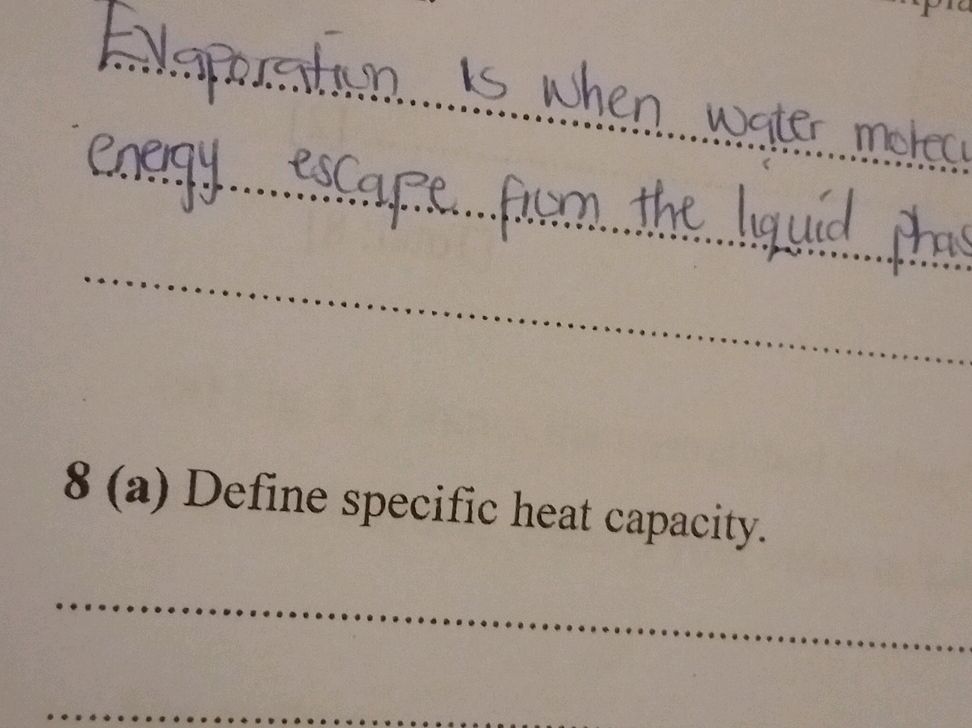 Evaporation is when water
energy escape from the liquid
8 (a) Define specific heat capacity.